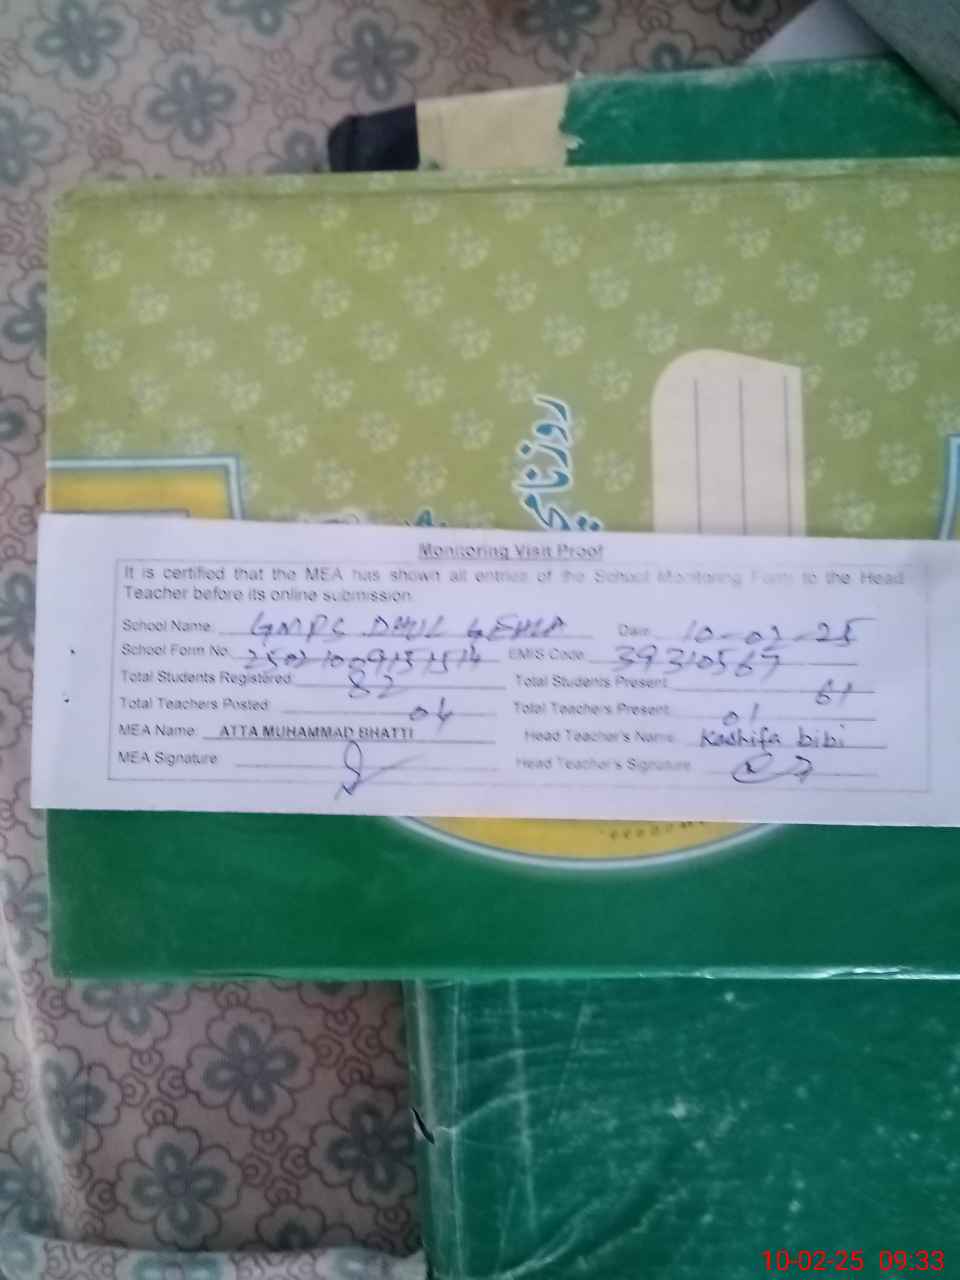 روزنامچہ
Monitoring Visit Proof
It is certified that the MEA has shown all entries of the School Monitoring Form to the Head
Teacher before its online submission.
School Name: GMPS DHUL Date: 10-02-25
School Form No: EMIS Code: 39310567
Total Students Registered: 82 Total Students Present: 61
Total Teachers Posted: 04 Total Teachers Present: 01
MEA Name: ATTA MUHAMMAD BHATTI Head Teacher's Name: Kashifa bibi
MEA Signature: Head Teacher's Signature:
10-02-25 09:33